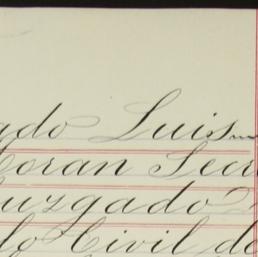 ado Luis
Moran Secr
Juzgado
do Civil de